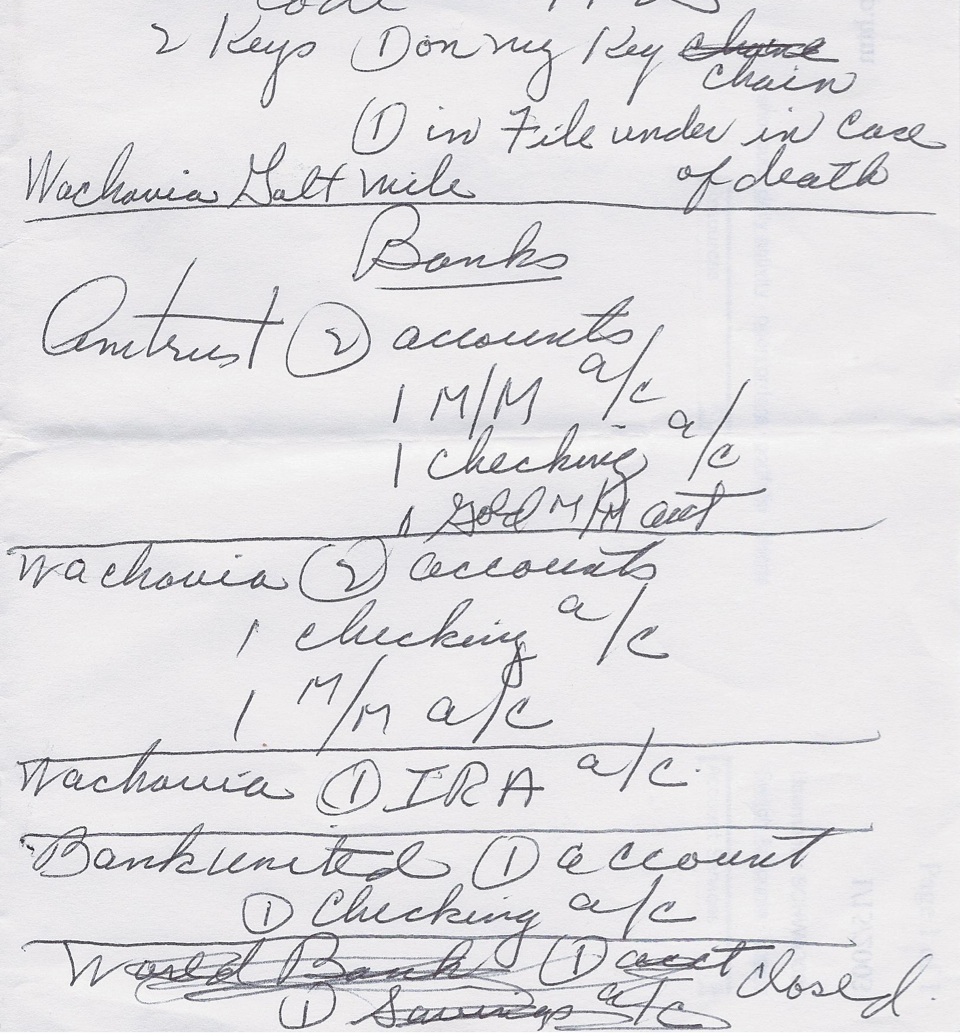 Code
2 Keys ① on my Key chaine
chain
① in File under in case
of death
Wachovia Galt Mile
Banks
Amtrust ② accounts
1 M/M a/c
1 checking a/c
1 Gold M/M acct
Wachovia ② accounts
1 checking a/c
1 M/M a/c
Wachovia ① IRA a/c
Bankunited ① account
① Checking a/c
World Bank ① acct closed.
① Savings a/c